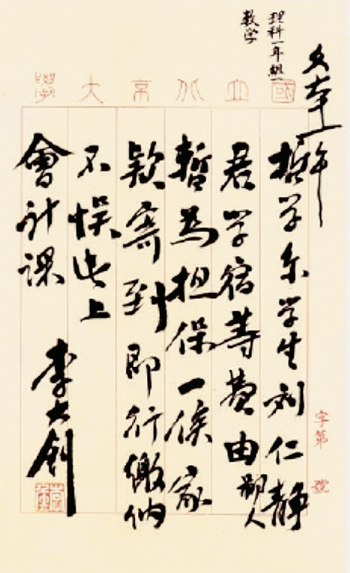 國立北京大學
理科一年
数学
哲学系学生刘仁静
君学宿等费由鄙人
暫为担保一俟家
款寄到即行繳纳
不悮此上
會计课
李大釗
字第 號